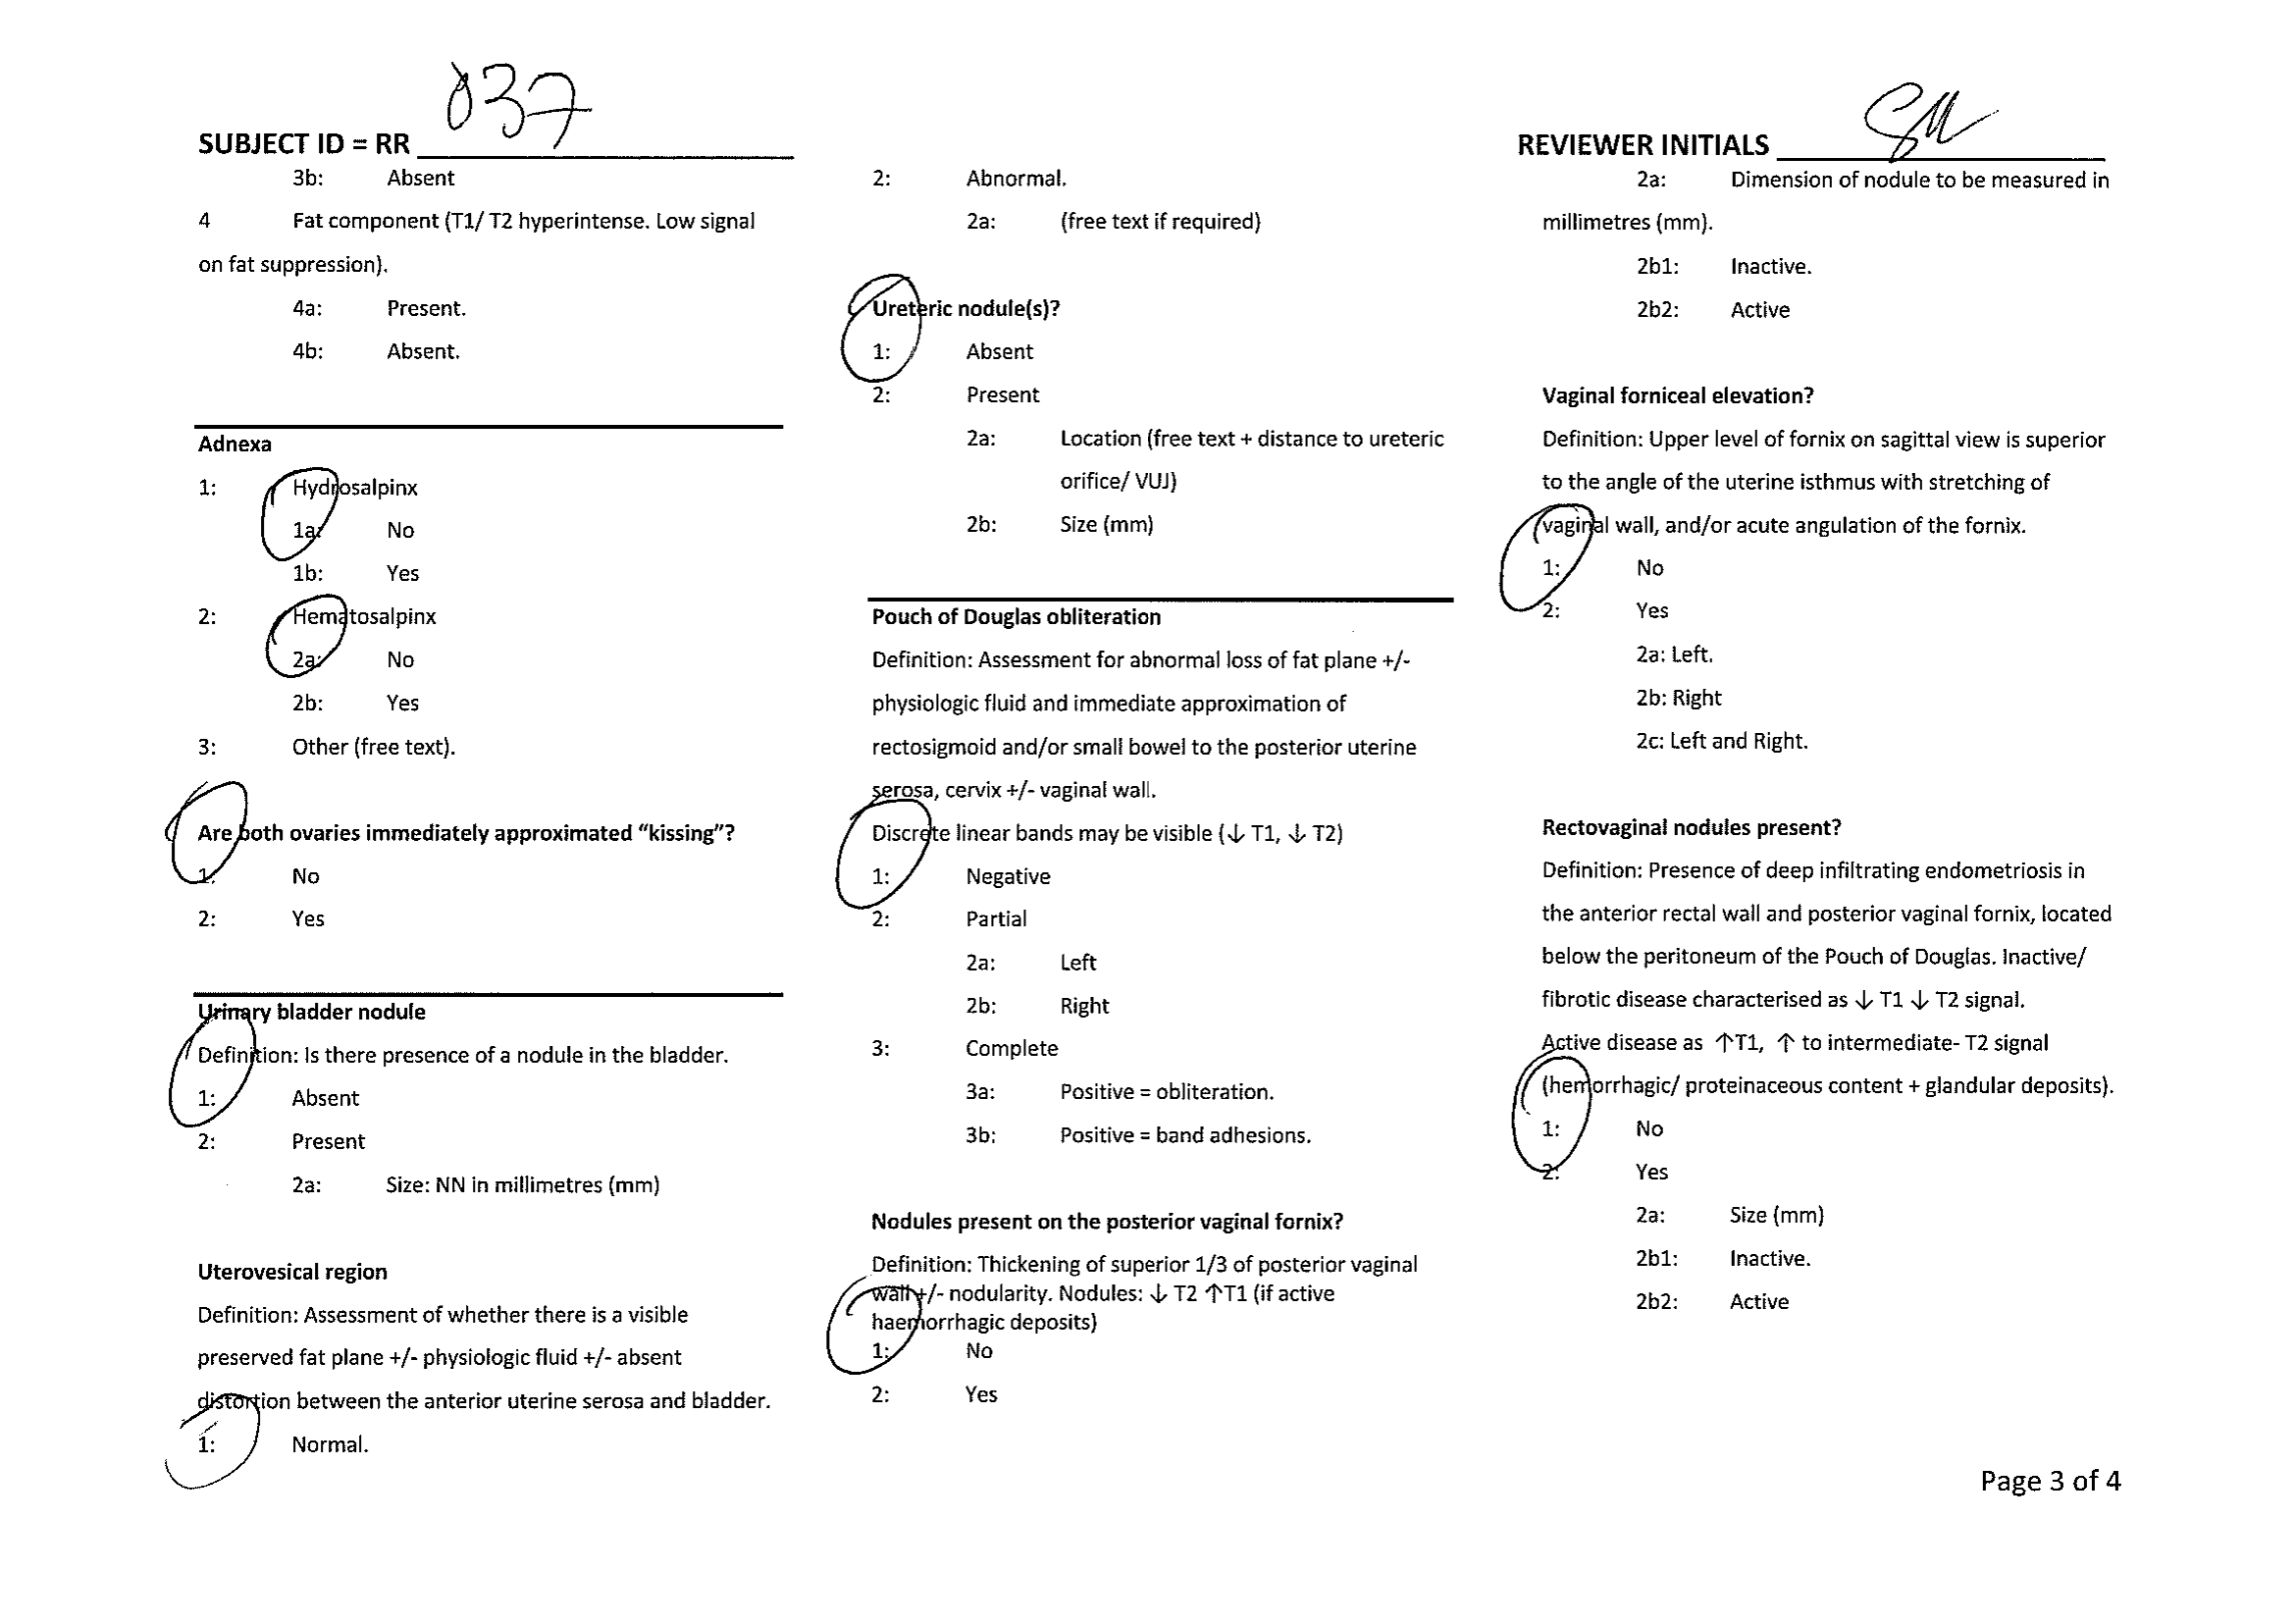 SUBJECT ID = RR 037
REVIEWER INITIALS SM
3b: Absent
4 Fat component (T1/ T2 hyperintense. Low signal
on fat suppression).
4a: Present.
4b: Absent.
Adnexa
1: Hydrosalpinx
1a: No
1b: Yes
2: Hematosalpinx
2a: No
2b: Yes
3: Other (free text).
Are both ovaries immediately approximated “kissing”?
1: No
2: Yes
Urinary bladder nodule
Definition: Is there presence of a nodule in the bladder.
1: Absent
2: Present
2a: Size: NN in millimetres (mm)
Uterovesical region
Definition: Assessment of whether there is a visible
preserved fat plane +/- physiologic fluid +/- absent
distortion between the anterior uterine serosa and bladder.
1: Normal.
2: Abnormal.
2a: (free text if required)
Ureteric nodule(s)?
1: Absent
2: Present
2a: Location (free text + distance to ureteric
orifice/ VUJ)
2b: Size (mm)
Pouch of Douglas obliteration
Definition: Assessment for abnormal loss of fat plane +/-
physiologic fluid and immediate approximation of
rectosigmoid and/or small bowel to the posterior uterine
serosa, cervix +/- vaginal wall.
Discrete linear bands may be visible (↓ T1, ↓ T2)
1: Negative
2: Partial
2a: Left
2b: Right
3: Complete
3a: Positive = obliteration.
3b: Positive = band adhesions.
Nodules present on the posterior vaginal fornix?
Definition: Thickening of superior 1/3 of posterior vaginal
wall +/- nodularity. Nodules: ↓ T2 ↑T1 (if active
haemorrhagic deposits)
1: No
2: Yes
2a: Dimension of nodule to be measured in
millimetres (mm).
2b1: Inactive.
2b2: Active
Vaginal forniceal elevation?
Definition: Upper level of fornix on sagittal view is superior
to the angle of the uterine isthmus with stretching of
vaginal wall, and/or acute angulation of the fornix.
1: No
2: Yes
2a: Left.
2b: Right
2c: Left and Right.
Rectovaginal nodules present?
Definition: Presence of deep infiltrating endometriosis in
the anterior rectal wall and posterior vaginal fornix, located
below the peritoneum of the Pouch of Douglas. Inactive/
fibrotic disease characterised as ↓ T1 ↓ T2 signal.
Active disease as ↑T1, ↑ to intermediate- T2 signal
(hemorrhagic/ proteinaceous content + glandular deposits).
1: No
2: Yes
2a: Size (mm)
2b1: Inactive.
2b2: Active
Page 3 of 4